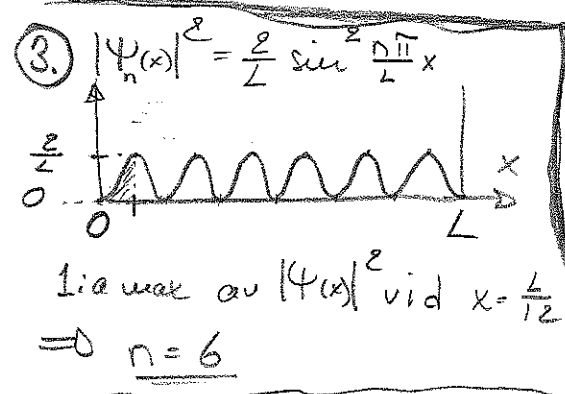 3. |Ψₙ(x)|² = 2/L sin² nπ/L x
2/L
x
0
0 L
1:a max av |Ψ(x)|² vid x = L/12
⇒ n = 6